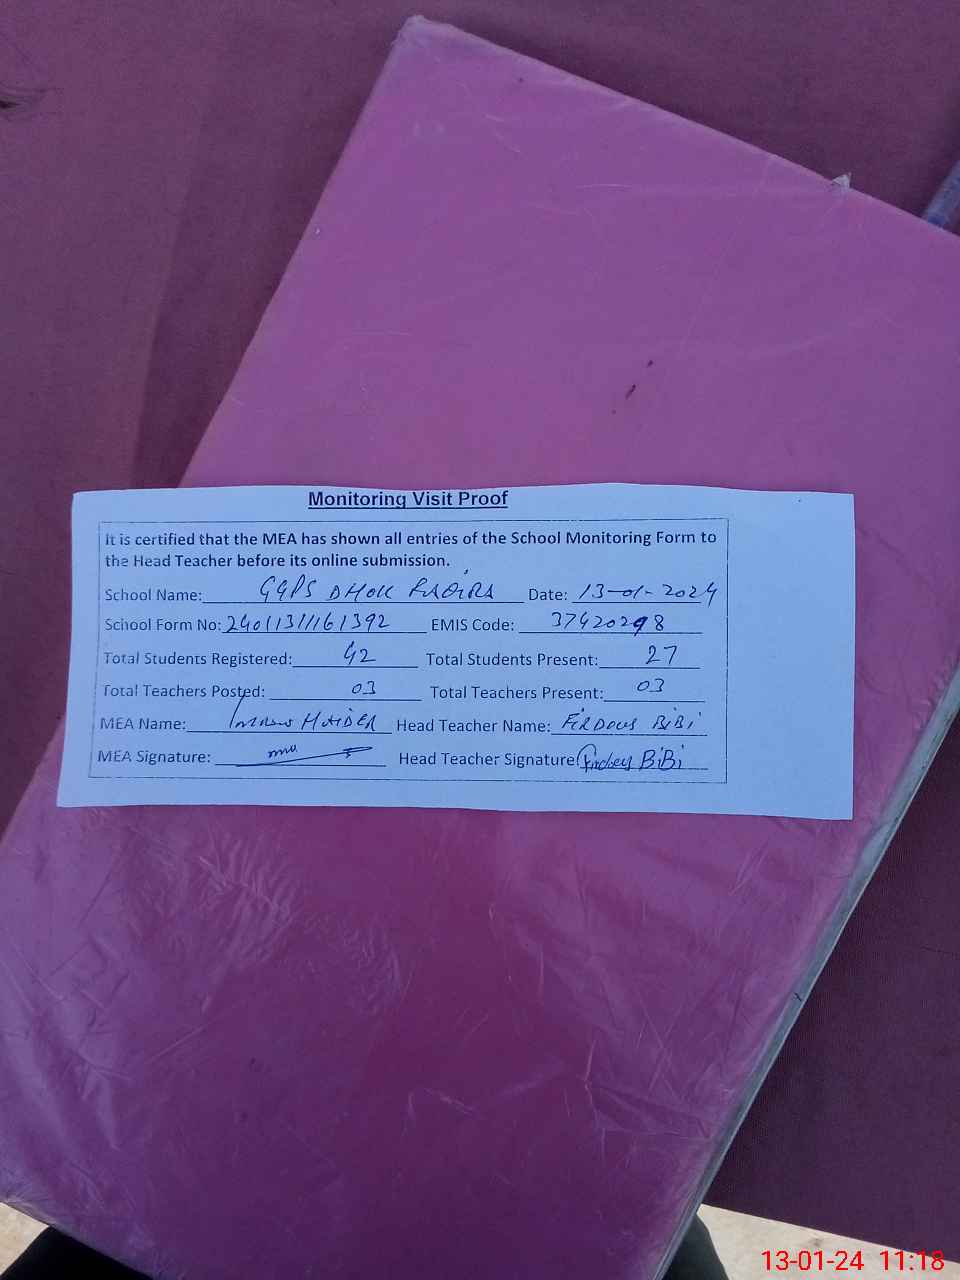 Monitoring Visit Proof
It is certified that the MEA has shown all entries of the School Monitoring Form to
the Head Teacher before its online submission.
School Name: GGPS DHOK Date: 13-01-2024
School Form No: 24011311161392 EMIS Code: 37420298
Total Students Registered: 42 Total Students Present: 27
Total Teachers Posted: 03 Total Teachers Present: 03
MEA Name: HAIDER Head Teacher Name: FIRDOUS BiBi
MEA Signature: Head Teacher Signature BiBi
13-01-24 11:18